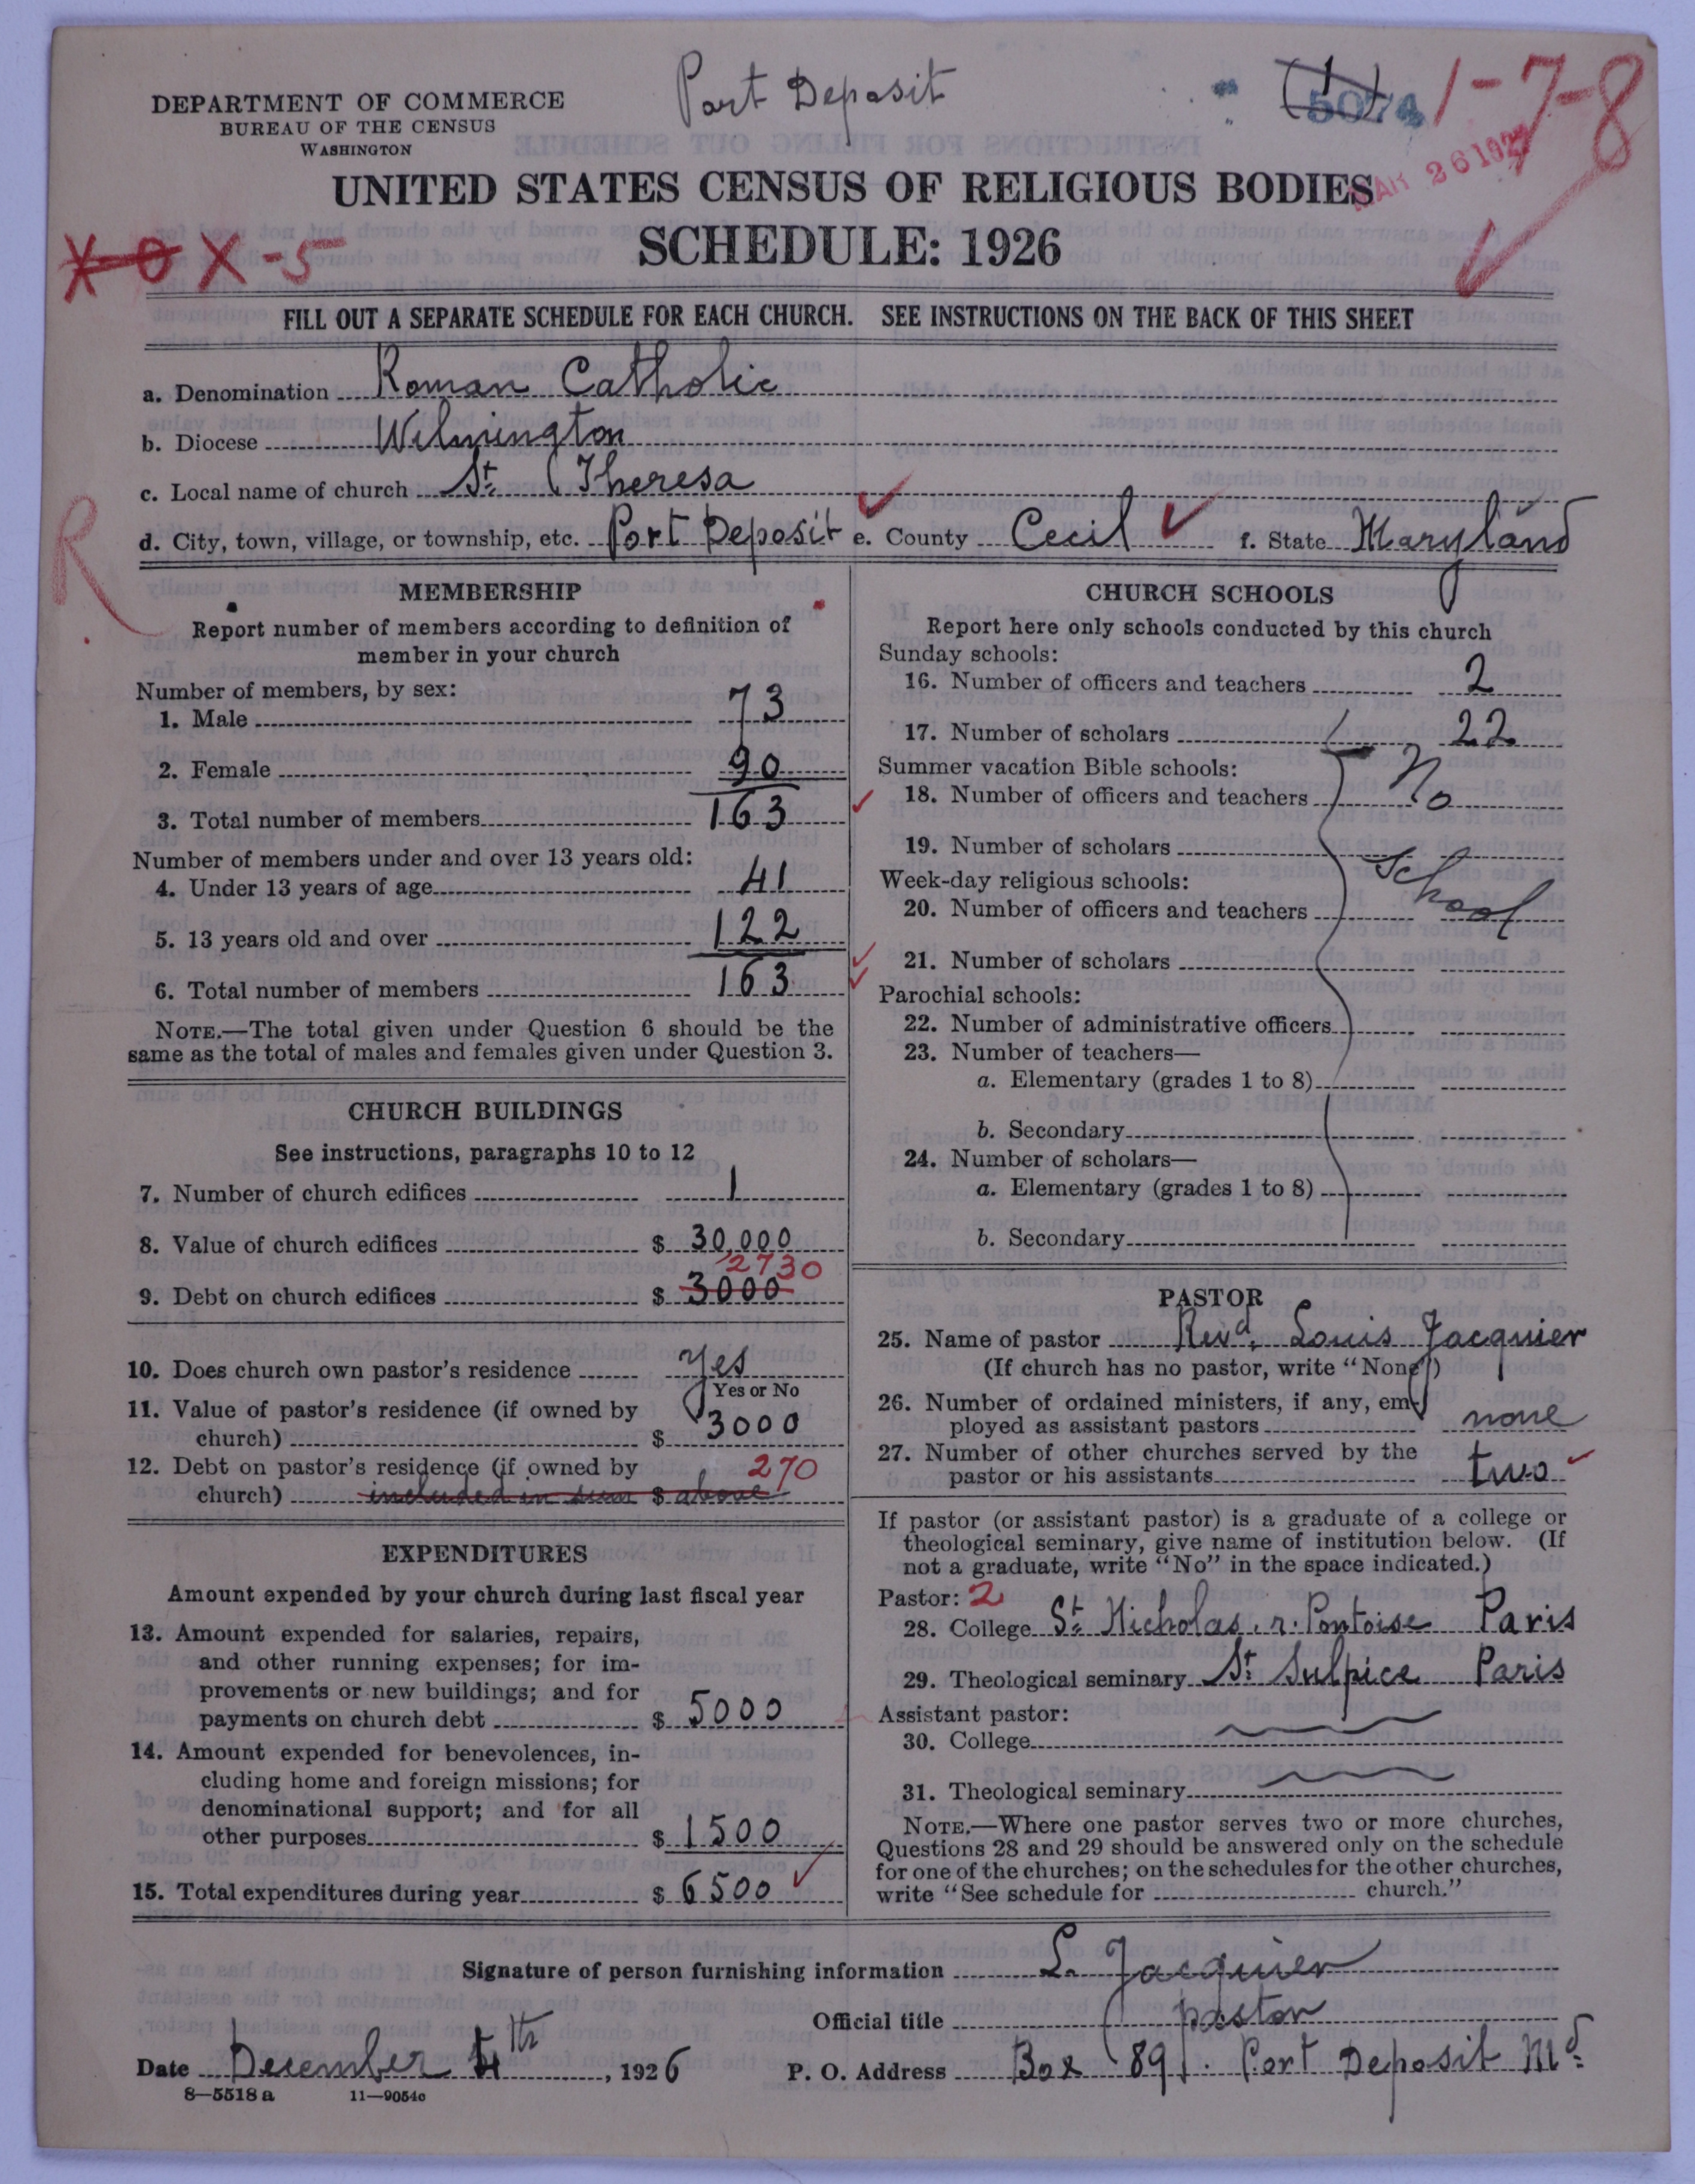 Port Deposit
(1)
5074
1-7-8
DEPARTMENT OF COMMERCE
BUREAU OF THE CENSUS
WASHINGTON
MAR 26 1927
UNITED STATES CENSUS OF RELIGIOUS BODIES
SCHEDULE: 1926
X-0 X-5
FILL OUT A SEPARATE SCHEDULE FOR EACH CHURCH. SEE INSTRUCTIONS ON THE BACK OF THIS SHEET
a. Denomination Roman Catholic
b. Diocese Wilmington
c. Local name of church St. Theresa
d. City, town, village, or township, etc. Port Deposit e. County Cecil f. State Maryland
R
MEMBERSHIP
Report number of members according to definition of
member in your church
Number of members, by sex:
1. Male 73
2. Female 90
3. Total number of members 163
Number of members under and over 13 years old:
4. Under 13 years of age 41
5. 13 years old and over 122
6. Total number of members 163
NOTE.—The total given under Question 6 should be the
same as the total of males and females given under Question 3.
CHURCH BUILDINGS
See instructions, paragraphs 10 to 12
7. Number of church edifices 1
8. Value of church edifices $ 30,000
2730
9. Debt on church edifices $ 3000
10. Does church own pastor's residence yes
Yes or No
11. Value of pastor's residence (if owned by
church) $ 3000
12. Debt on pastor's residence (if owned by 270
church) included in sum $ above
EXPENDITURES
Amount expended by your church during last fiscal year
13. Amount expended for salaries, repairs,
and other running expenses; for im-
provements or new buildings; and for
payments on church debt $ 5000
14. Amount expended for benevolences, in-
cluding home and foreign missions; for
denominational support; and for all
other purposes $ 1500
15. Total expenditures during year $ 6500
CHURCH SCHOOLS
Report here only schools conducted by this church
Sunday schools:
16. Number of officers and teachers 2
17. Number of scholars 22
Summer vacation Bible schools:
18. Number of officers and teachers No
19. Number of scholars
Week-day religious schools: School
20. Number of officers and teachers
21. Number of scholars
Parochial schools:
22. Number of administrative officers
23. Number of teachers—
a. Elementary (grades 1 to 8)
b. Secondary
24. Number of scholars—
a. Elementary (grades 1 to 8)
b. Secondary
PASTOR
25. Name of pastor Revd. Louis Jacquier
(If church has no pastor, write "None")
26. Number of ordained ministers, if any, em-
ployed as assistant pastors none
27. Number of other churches served by the
pastor or his assistants two
If pastor (or assistant pastor) is a graduate of a college or
theological seminary, give name of institution below. (If
not a graduate, write "No" in the space indicated.)
Pastor: 2
28. College St. Nicholas. r. Pontoise Paris
29. Theological seminary St. Sulpice Paris
Assistant pastor:
30. College
31. Theological seminary
NOTE.—Where one pastor serves two or more churches,
Questions 28 and 29 should be answered only on the schedule
for one of the churches; on the schedules for the other churches,
write "See schedule for church."
Signature of person furnishing information L. Jacquier
Official title pastor
Date December 4th, 1926 P. O. Address Box 89. Port Deposit Md.
8—5518 a 11—9054c